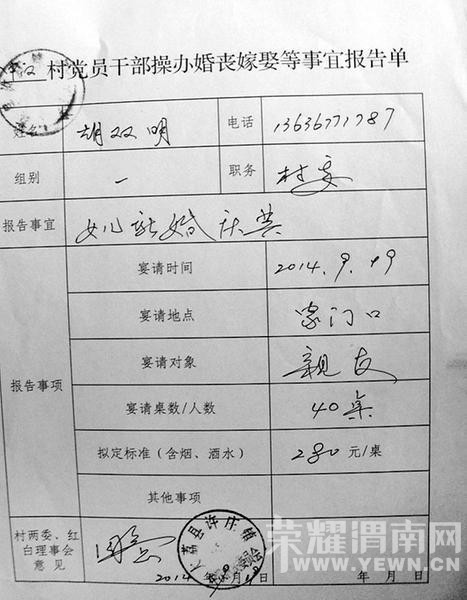 村党员干部操办婚丧嫁娶等事宜报告单
姓名 胡双明 电话 13636771787
组别 一 职务 村委
报告事宜 女儿结婚庆典
报告事项
宴请时间 2014.9.19
宴请地点 家门口
宴请对象 亲友
宴请桌数/人数 40桌
拟定标准（含烟、酒水） 280元/桌
其他事项
村两委、红白理事会意见 同意
县许庄镇
2014 年 月 日 年 月 日
荣耀渭南网
WWW.YEWN.CN